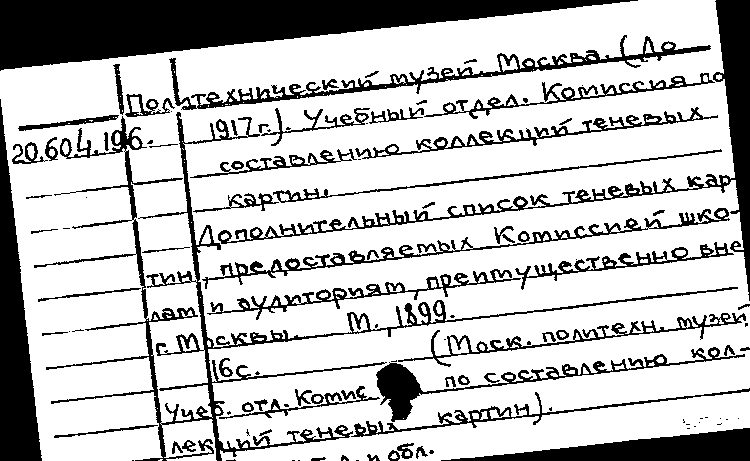 Политехнический музей. Москва. (До
20.604.196. 1917 г.). Учебный отдел. Комиссия по
составлению коллекций теневых
картин.
Дополнительный список теневых кар-
тин, предоставляемых Комиссией шко-
лам и аудиториям, преимущественно вне
г. Москвы. М., 1899.
16 с. (Моск. политехн. музей
Учеб. отд. Комис по составлению кол-
лекций теневых картин).
и обл.